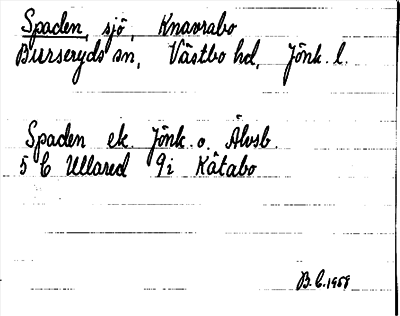 Spaden, sjö, Knavrabo
Burseryds sn, Västbo hd, Jönk. l.
Spaden ek. Jönk. o. Älvsb.
5 C Ullared 9i Kåtabo
B.C. 1959